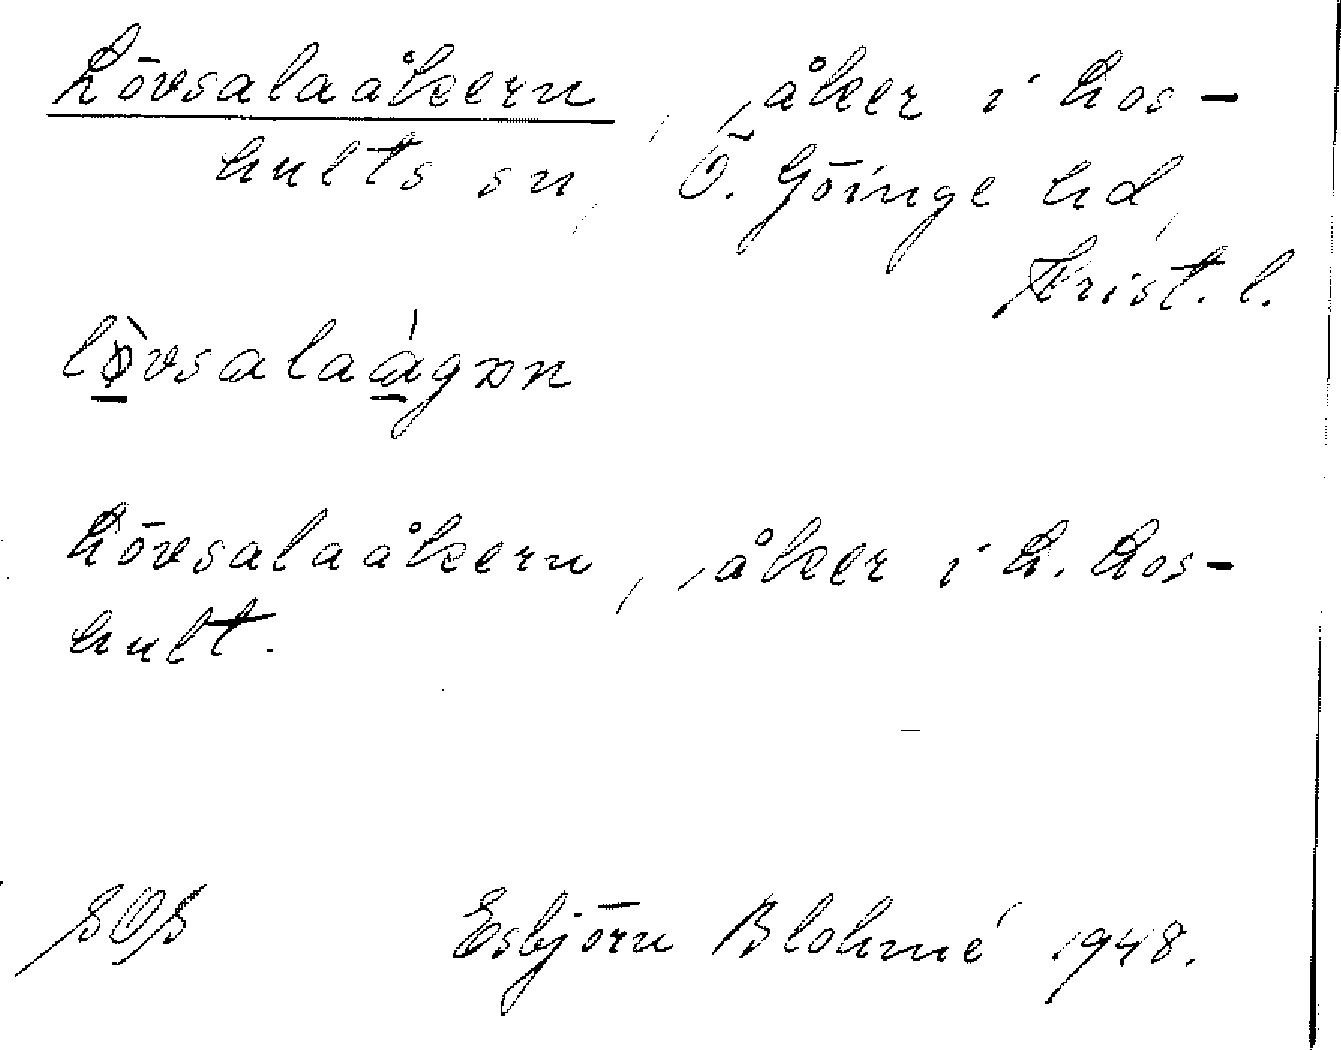 Lövsalaåkern, åker i Los-
hults sn, Ö. Göinge hd,
Krist. l.
lövsalaågən
Lövsalaåkern, åker i L. Los-
hult.
SOS Esbjörn Blohmé 1948.